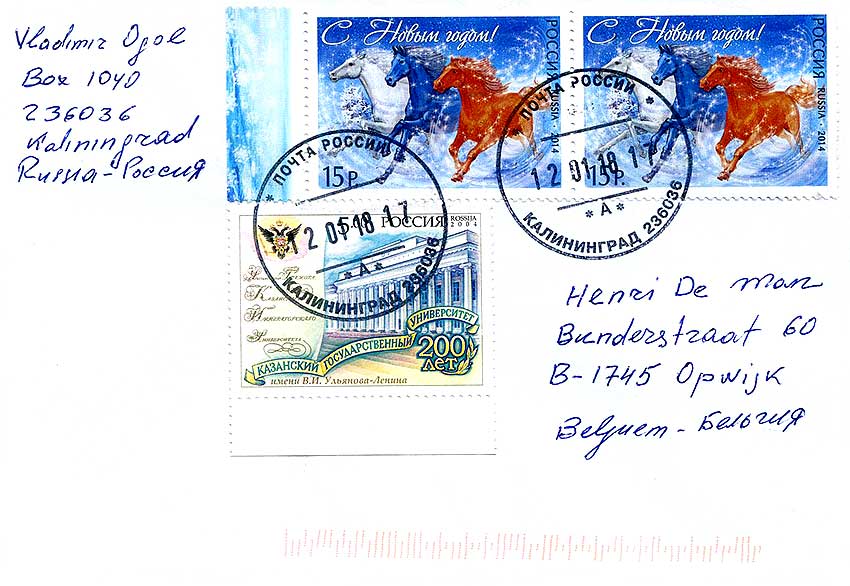 Vladimir Ogol
Box 1040
236036
Kaliningrad
Russia-Россия
С Новым годом!
РОССИЯ RUSSIA · 2014
15р.
С Новым годом!
РОССИЯ RUSSIA · 2014
15р.
ПОЧТА РОССИИ
12 01 18 17
* А *
КАЛИНИНГРАД 236036
ПОЧТА РОССИИ
12 01 18 17
* А *
КАЛИНИНГРАД 236036
5.00 РОССИЯ ROSSIJA
2004
Казанского
Императорского
Университета
КАЗАНСКИЙ ГОСУДАРСТВЕННЫЙ УНИВЕРСИТЕТ
200 ЛЕТ
имени В.И. Ульянова-Ленина
Henri De Man
Bunderstraat 60
B-1745 Opwijk
Belguem-Бельгия